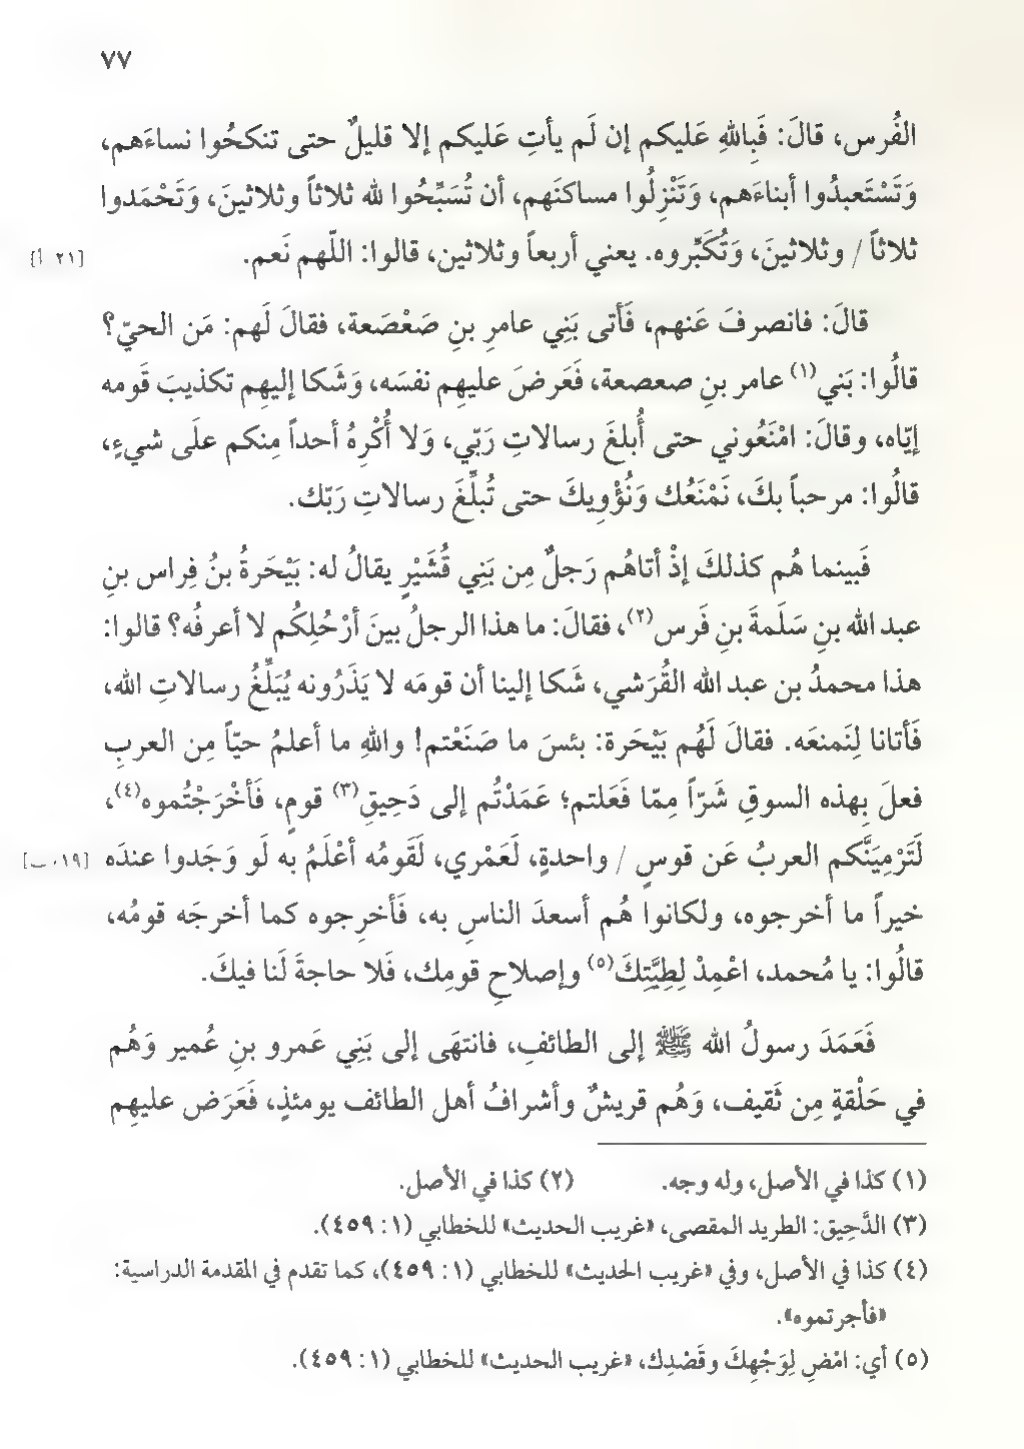 ٧٧
الفُرس، قالَ: فَبِاللهِ عَليكم إن لَم يأتِ عَليكم إلا قليلٌ حتى تنكحُوا نساءَهم،
وَتَسْتَعبدُوا أبناءَهم، وَتَنْزِلُوا مساكنَهم، أن تُسَبِّحُوا لله ثلاثاً وثلاثينَ، وَتَحْمَدوا
ثلاثاً / وثلاثينَ، وَتُكَبِّروه. يعني أربعاً وثلاثين، قالوا: اللّهم نَعم. [٢١ أ]
قالَ: فانصرفَ عَنهم، فَأتى بَنِي عامرِ بنِ صَعْصَعة، فقالَ لَهم: مَن الحيّ؟
قالُوا: بَني(١) عامر بنِ صعصعة، فَعَرضَ عليهِم نفسَه، وَشَكا إليهِم تكذيبَ قَومه
إيّاه، وقالَ: امْنَعُوني حتى أُبلغَ رسالاتِ رَبّي، وَلا أُكْرِهُ أحداً مِنكم علَى شيءٍ،
قالُوا: مرحباً بكَ، نَمْنَعُك وَنُؤْوِيكَ حتى تُبلِّغَ رسالاتِ رَبّك.
فَبينما هُم كذلكَ إذْ أتاهُم رَجلٌ مِن بَنِي قُشَيْرٍ يقالُ له: بَيْحَرةُ بنُ فِراس بنِ
عبد الله بنِ سَلَمةَ بنِ فَرس(٢)، فقالَ: ما هذا الرجلُ بينَ أرْحُلِكُم لا أعرفُه؟ قالوا:
هذا محمدُ بن عبد الله القُرَشي، شَكا إلينا أن قومَه لا يَذَرُونه يُبَلِّغُ رسالاتِ الله،
فَأتانا لِنَمنعَه. فقالَ لَهُم بَيْحَرة: بئسَ ما صَنَعْتم! واللهِ ما أعلمُ حيّاً مِن العربِ
فعلَ بِهذه السوقِ شَرّاً مِمّا فَعَلتم؛ عَمَدْتُم إلى دَحِيقِ(٣) قومٍ، فَأخْرَجْتُموه(٤)،
لَتَرْمِيَنَّكم العربُ عَن قوسٍ / واحدةٍ، لَعَمْري، لَقَومُه أعْلَمُ به لَو وَجَدوا عندَه [٠١٩ ب]
خيراً ما أخرجوه، ولكانوا هُم أسعدَ الناسِ به، فَأخرِجوه كما أخرجَه قومُه،
قالُوا: يا مُحمد، اعْمِدْ لِطِيَّتِكَ(٥) وإصلاحِ قومِك، فَلا حاجةَ لَنا فيكَ.
فَعَمَدَ رسولُ الله ﷺ إلى الطائفِ، فانتهَى إلى بَنِي عَمرو بنِ عُمير وَهُم
في حَلْقةٍ مِن ثَقيف، وَهُم قريشٌ وأشرافُ أهل الطائف يومئذٍ، فَعَرَض عليهِم
(١) كذا في الأصل، وله وجه. (٢) كذا في الأصل.
(٣) الدَّحِيق: الطريد المقصى، «غريب الحديث» للخطابي (١: ٤٥٩).
(٤) كذا في الأصل، وفي «غريب الحديث» للخطابي (١: ٤٥٩)، كما تقدم في المقدمة الدراسية:
«فأجرتموه».
(٥) أي: امْضِ لِوَجْهِكَ وقَصْدِك، «غريب الحديث» للخطابي (١: ٤٥٩).